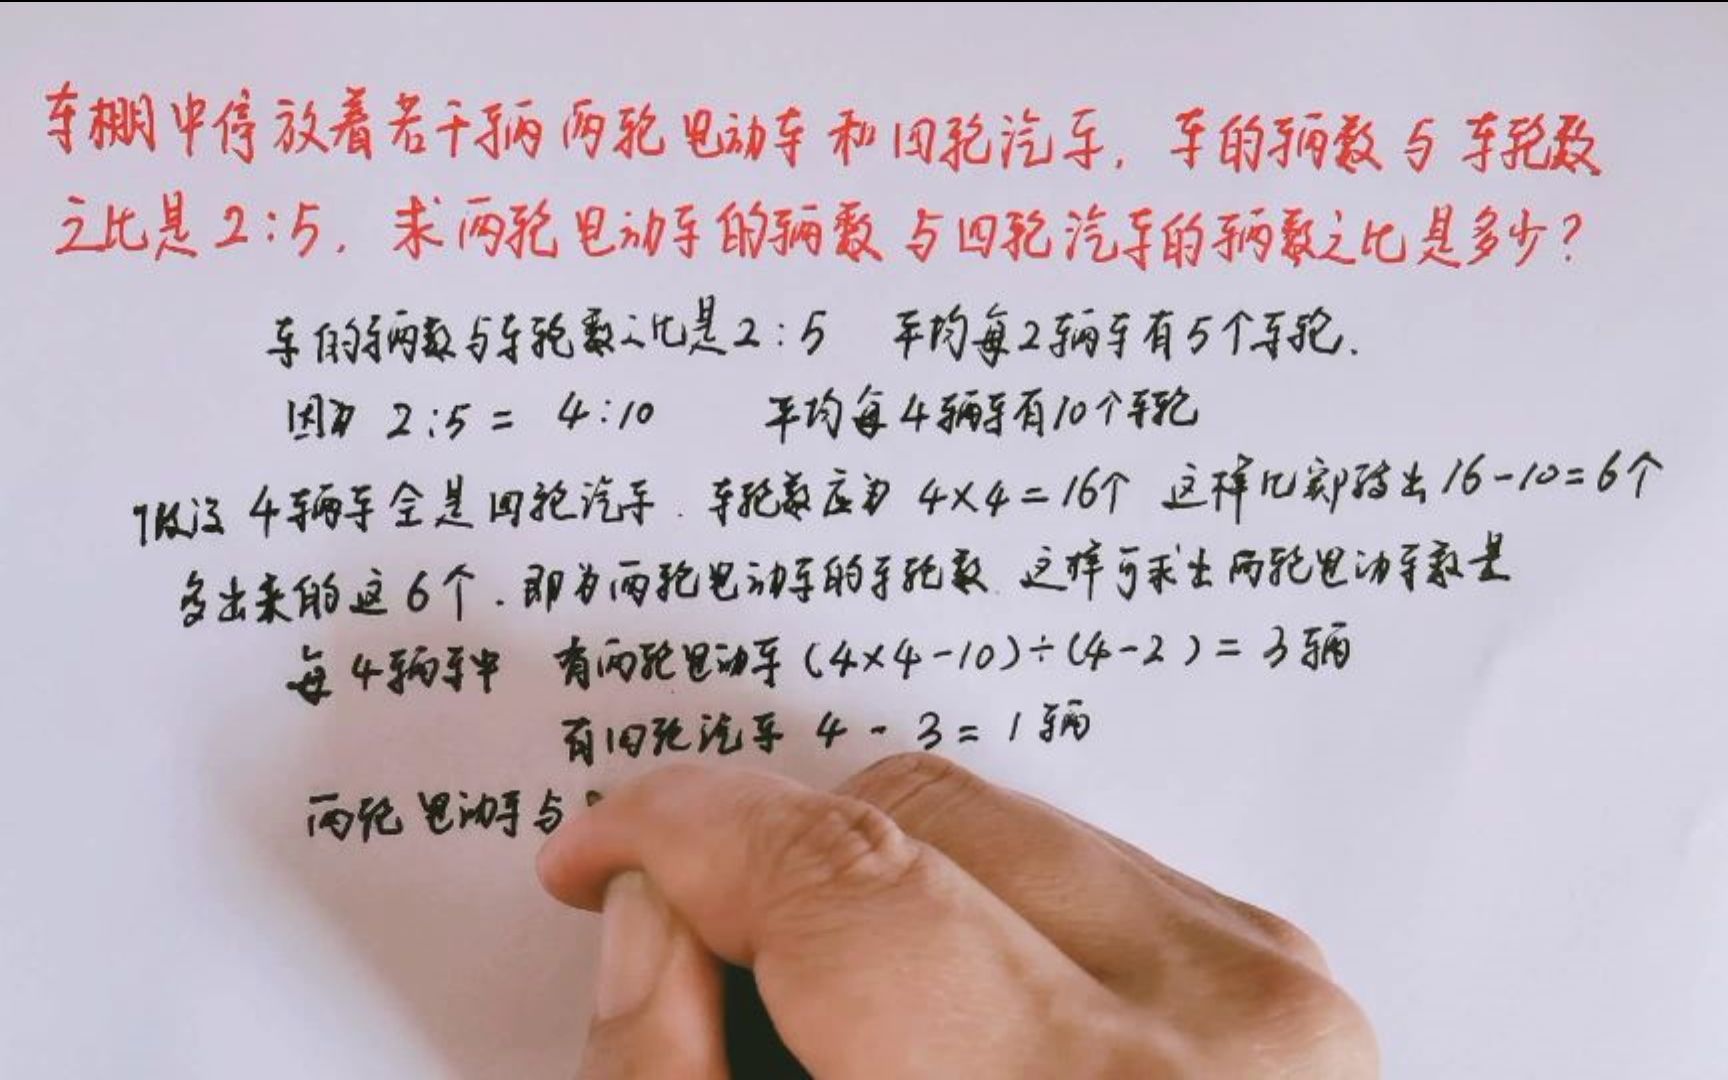 车棚中停放着若干辆两轮电动车和四轮汽车，车的辆数与车轮数
之比是2:5，求两轮电动车的辆数与四轮汽车的辆数之比是多少？
车的辆数与车轮数之比是2:5 平均每2辆车有5个车轮.
因为 2:5 = 4:10 平均每4辆车有10个车轮
假设4辆车全是四轮汽车. 车轮数应为 4×4=16个 这样比实际多出16-10=6个
多出来的这6个. 即为两轮电动车的车轮数. 这样可求出两轮电动车数是
每4辆车中 有两轮电动车(4×4-10)÷(4-2)=3辆
有四轮汽车 4-3=1辆
两轮电动车与